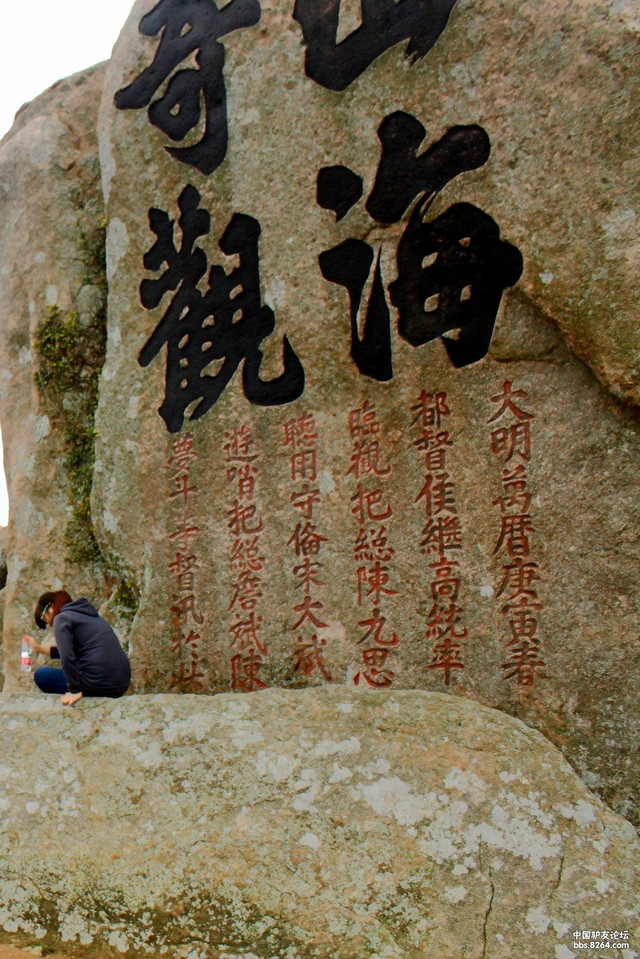 山海
奇觀
大明萬曆庚寅春
都督侯繼高統率
臨觀把總陳九思
聽用守備宋大斌
遊哨把總詹斌陳
夢斗等督汛於此
中国驴友论坛
bbs.8264.com